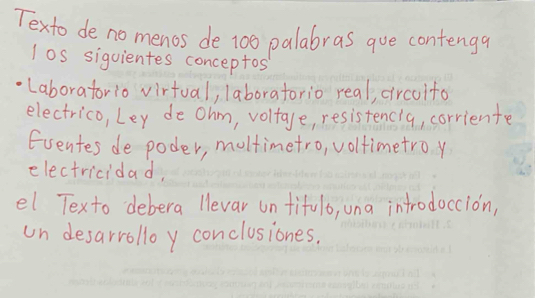 Texto de no menos de 100 palabras que contenga
los siguientes conceptos
• Laboratorio virtual, laboratorio real, circuito
electrico, Ley de Ohm, voltaje, resistencia, corriente
fuentes de poder, multimetro, voltimetro y
electricidad.
el Texto debera llevar un titulo, una introducción,
un desarrollo y conclusiones.